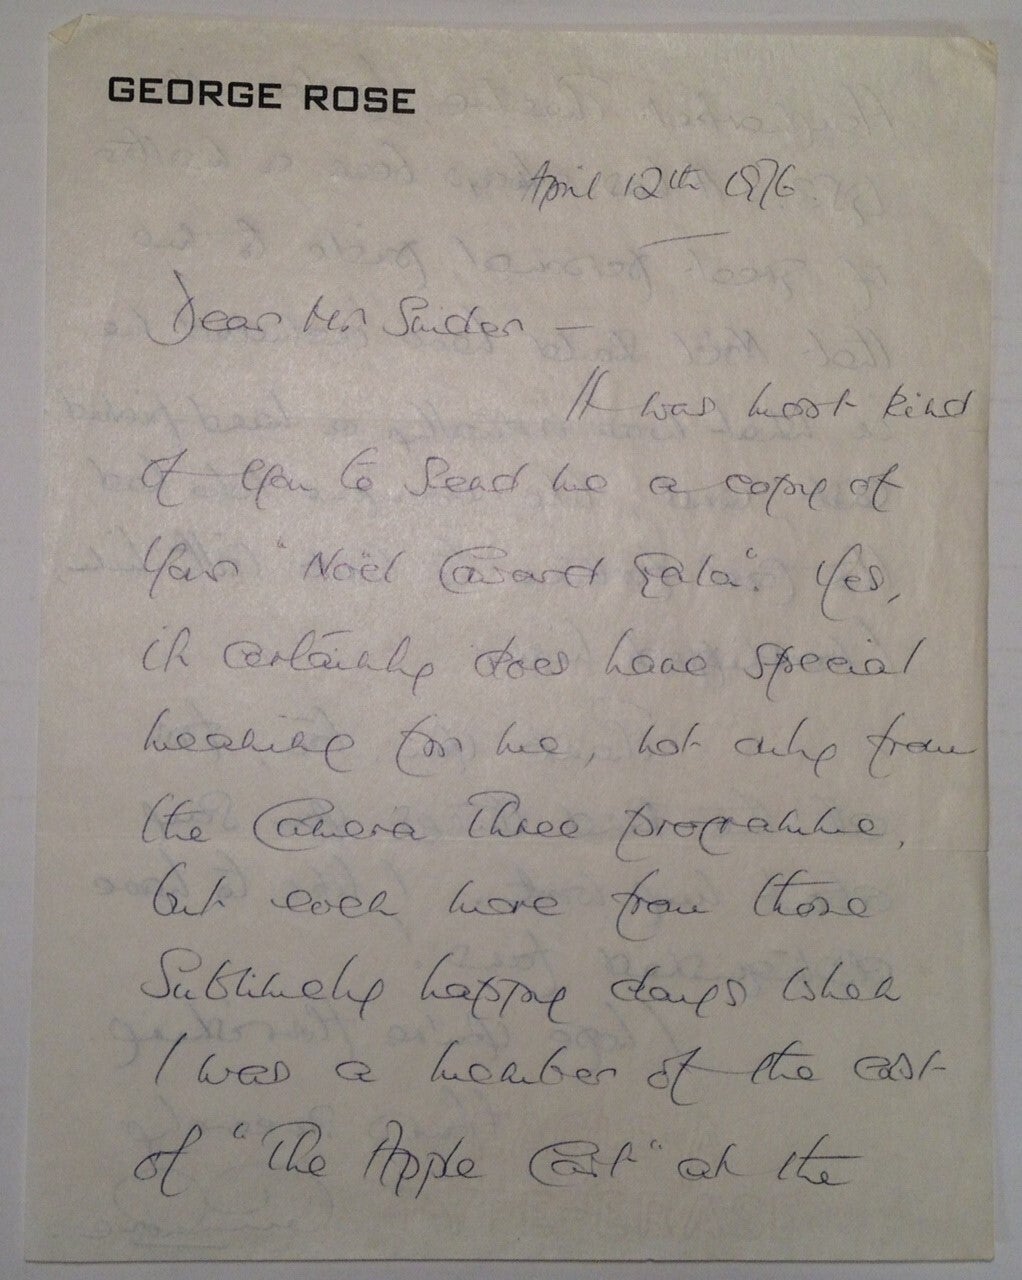 GEORGE ROSE
April 12th 1976.
Dear Mr Snider —
It was most kind
of you to send me a copy of
your "Noël Coward Gala". Yes,
it certainly does have special
meaning for me, not only from
the Camera Three programme,
but even more from those
sublimely happy days when
I was a member of the cast
of "The Apple Cart" at the